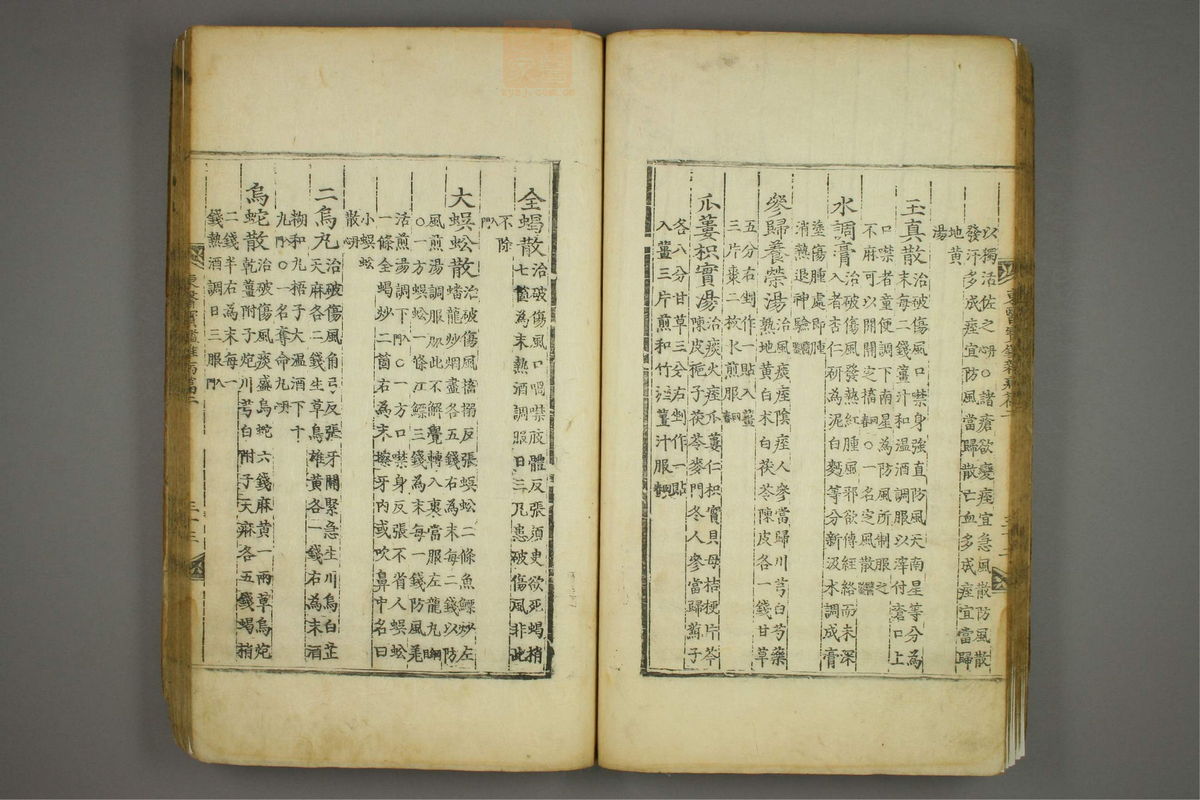 以獨活佐之○諸瘡欲變痓宜急風散防風散
發汗多成痓宜防風當歸散亡血多成痓宜當歸
地黄
湯
玉真散治破傷風口噤身強直防風天南星等分為
末每二錢薑汁和温酒調服以滓付瘡口上
口噤者童便調下南星為防風所制服之
不麻可以開關定搐○一名定風散
水調膏治破傷風發熱紅腫風邪欲傳經絡而未深
入者杏仁研為泥白麪等分新汲水調成膏
塗傷腫處即腫
消熱退神驗
參歸養榮湯治風痰痓陰痓人參當歸川芎白芍藥
熟地黄白朮白茯苓陳皮各一錢甘草
五分右剉作一貼入薑
三片棗二枚水煎服
瓜蔞枳實湯治痰火痓瓜蔞仁枳實貝母桔梗片芩
陳皮梔子茯苓麥門冬人參當歸蘇子
各八分甘草三分右剉作一貼
入薑三片煎和竹瀝薑汁服
全蝎散治破傷風口喎噤肢體反張須臾欲死蝎梢
七箇為末熱酒調服日三凡患破傷風非此
不除
大蜈蚣散治破傷風搐搦反張蜈蚣二條魚鰾炒左
蟠龍炒烟盡各五錢右為末每二錢以防
風煎湯調服如此不解覺轉入裏當服左龍丸
○一方蜈蚣一條江鰾三錢為末每一錢防風羌
活煎湯調下○一方口噤身反張不省人蜈蚣
一條全蝎炒二箇右為末擦牙內或吹鼻中名曰
小蜈蚣
散
二烏丸治破傷風角弓反張牙關緊急生川烏白芷
天麻各二錢生草烏雄黄各一錢右為末酒
糊和丸梧子大温酒下十
九○一名奪命丸
烏蛇散治破傷風痰盛烏蛇六錢麻黄一兩草烏炮
乾薑附子炮川芎白附子天麻各五錢蝎梢
二錢半右為末每一
錢熱酒調日三服
東醫寶鑑雜病篇
三十三